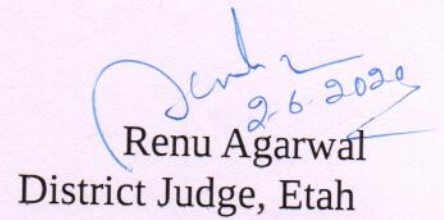 2.6.2020
Renu Agarwal
District Judge, Etah